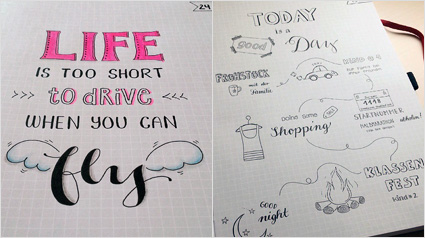 24
LIFE
IS TOO SHORT
to dRiVE
WHEN YOU CAN
fly
TODAY
is a
good
Day
FRÜHSTÜCK
mit der
Familie
Shopping
STARTNUMMER
abholen!
KLASSEN
FEST
Kind #2
GOOD
night